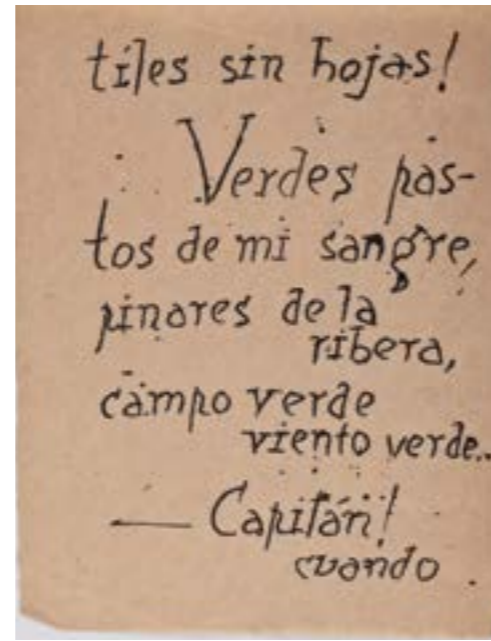 tiles sin hojas!
Verdes pas-
tos de mi sangre,
pinares de la
ribera,
campo verde
viento verde..
— Capitán!
cuando